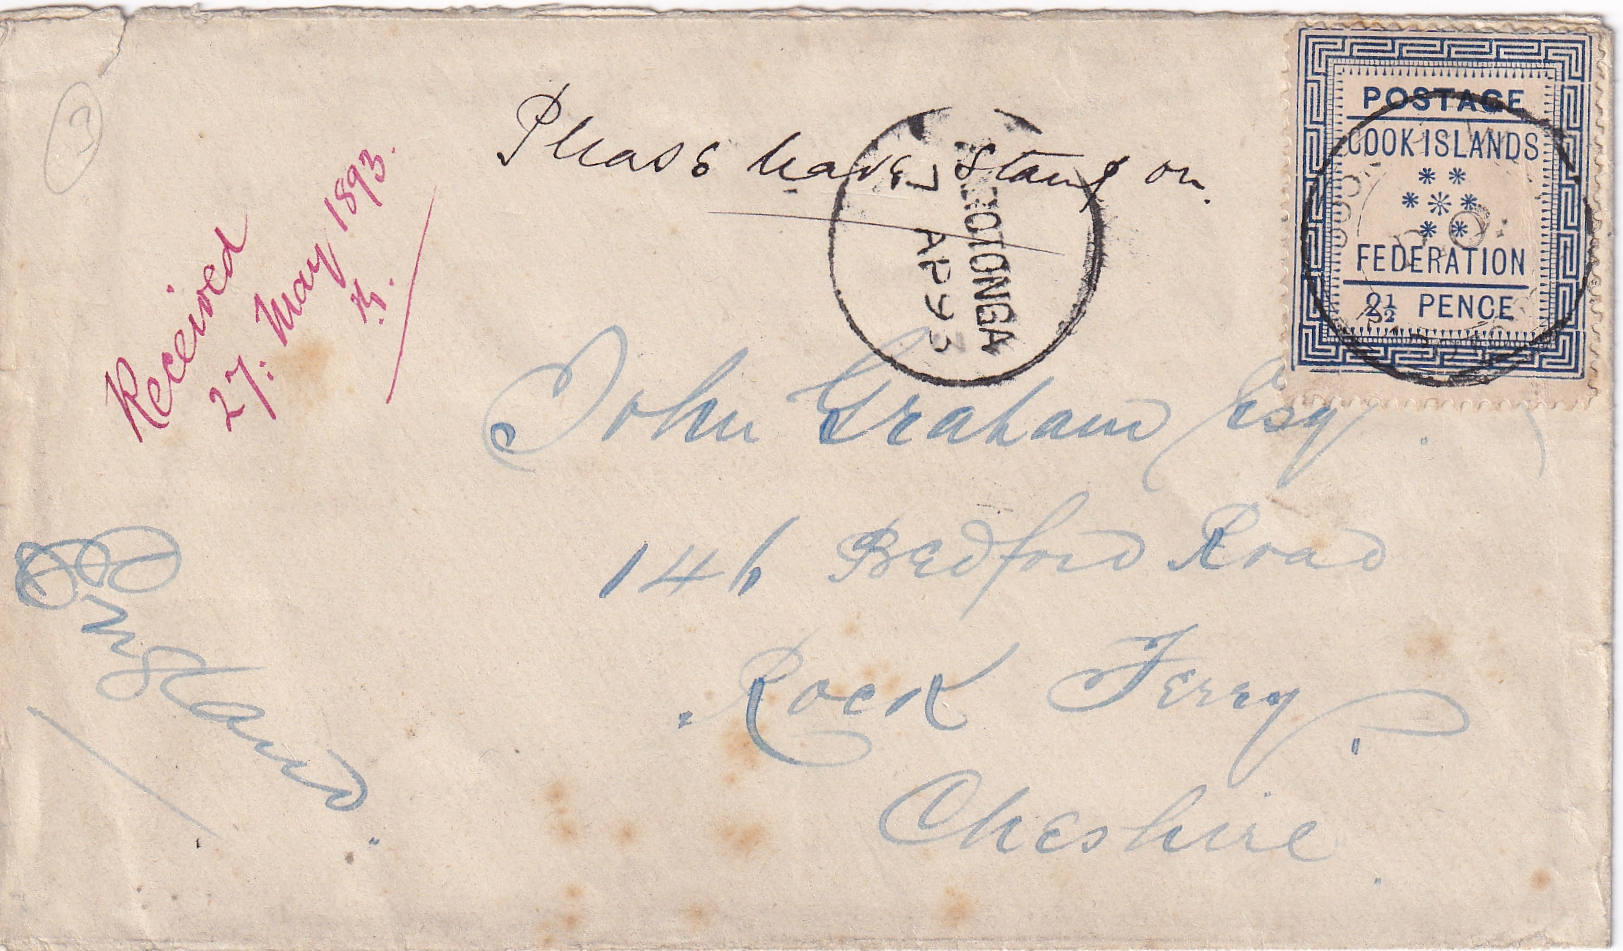 3
Please leave stamp on.
RAROTONGA
7
AP 93
POSTAGE
COOK ISLANDS
FEDERATION
2½ PENCE
Received
27. May 1893.
John Graham Esq.
146 Bedford Road
Rock Ferry
Cheshire
England.